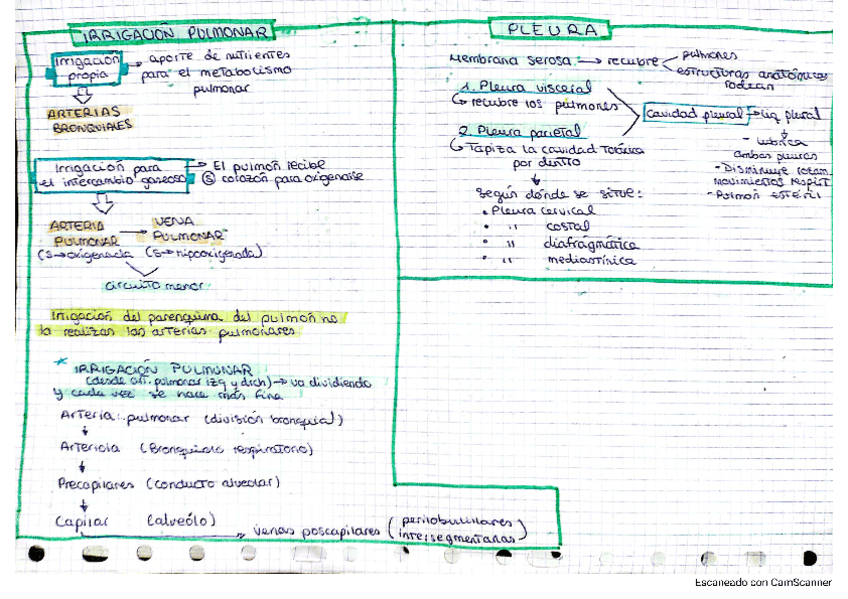 IRRIGACIÓN PULMONAR
Irrigación propia → aporte de nutrientes
para el metabolismo
pulmonar
ARTERIAS
BRONQUIALES
Irrigación para
el intercambio gaseoso → El pulmón recibe
Ⓢ corazón para origenarse
ARTERIA
PULMONAR → VENA
PULMONAR
(S→origenada (S→hipooxigenada)
circuito menor
Irrigación del parenquima del pulmón no
la realizan las arterias pulmonares
* IRRIGACIÓN PULMONAR
(desde art. pulmonar izq y drch) → va dividiendo
y cada vez se hace más fina
Arteria: pulmonar (división bronquial)
↓
Arteriola (Bronquiolo respiratorio)
↓
Precapilares (conducto alveolar)
↓
Capilar (alveólo)
→ venas poscapilares (perilobulillares
intersegmentarias)
PLEURA
Membrana serosa → recubre < pulmones
estructuras anatómicas
rodean
1. Pleura visceral
↳ recubre los pulmones
2. Pleura parietal
↳ Tapiza la cavidad torácica
por dentro
Cavidad pleural → liq pleural
- lubrica
ambas pleuras
- Disminuye
movimientos respir
- Pulmón estéril
↓
según donde se sitúe:
• Pleura cervical
• " costal
• " diafragmática
• " mediastínica
Escaneado con CamScanner